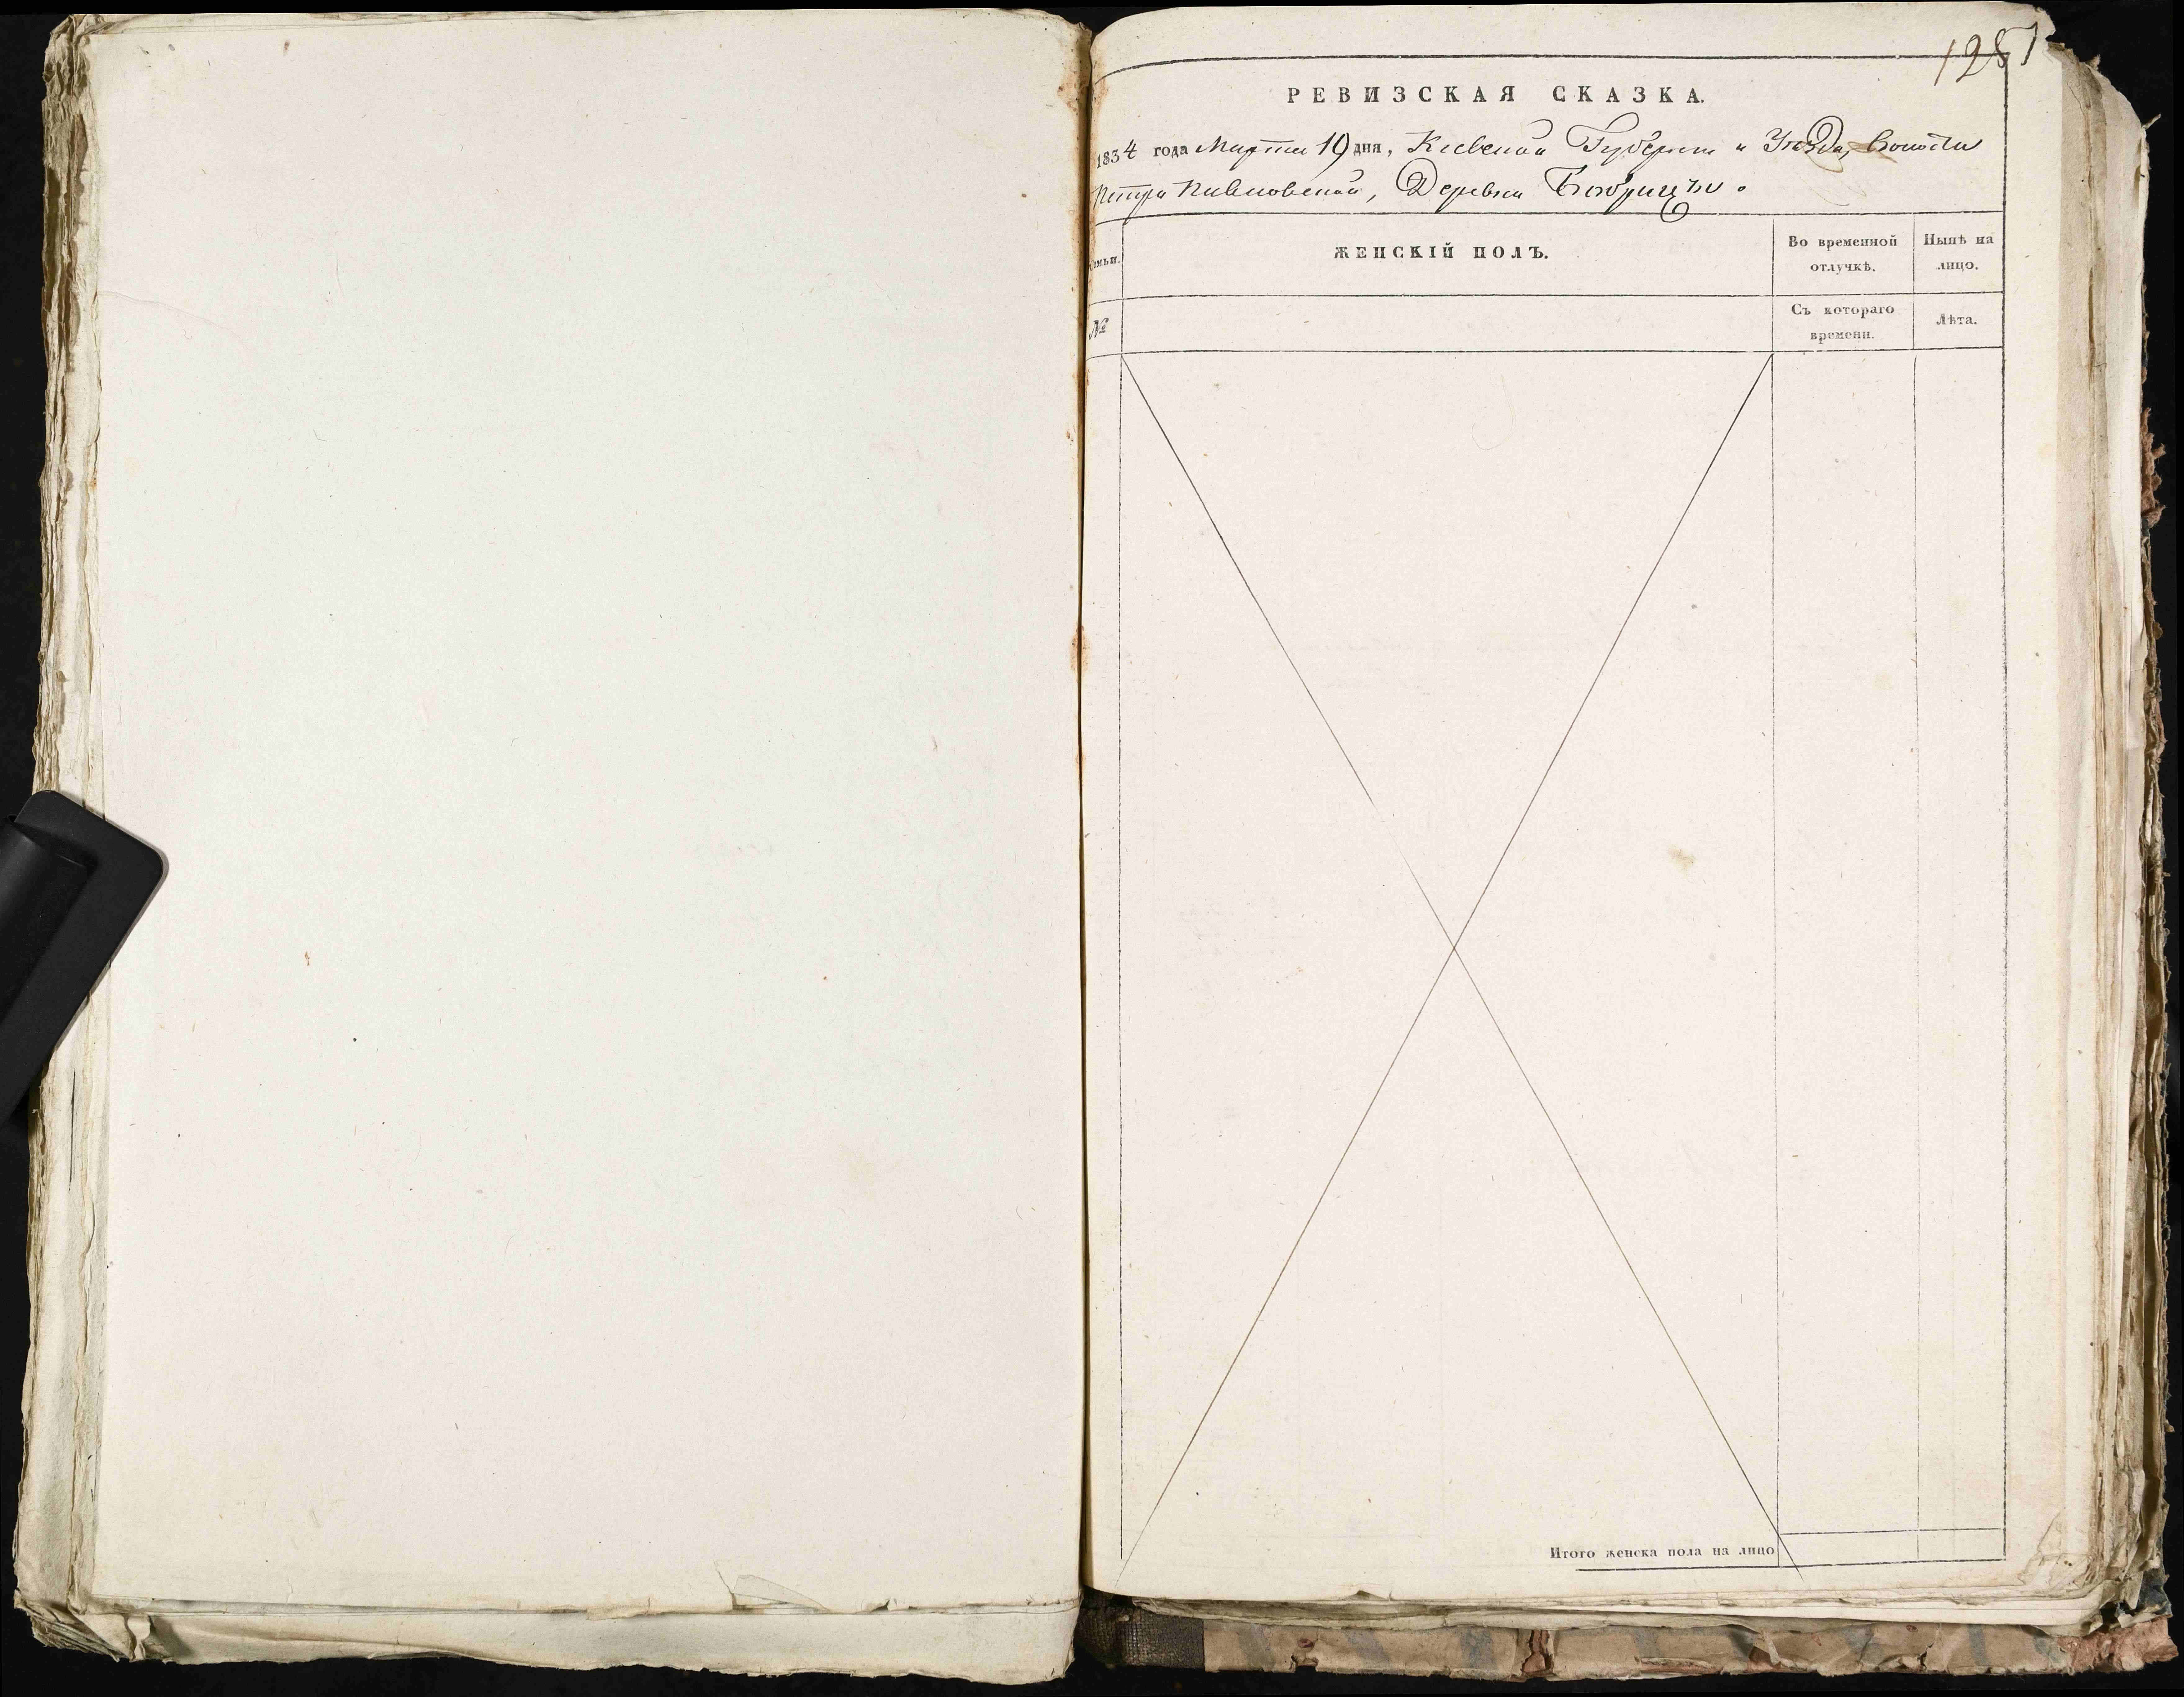 1281
РЕВИЗСКАЯ СКАЗКА.
1834 года Марта 19 дня, Киевской Губернии и Уезда, Волости
Петро Павловской, Деревни
Семьи.
ЖЕНСКІЙ ПОЛЪ.
Во временной отлучкѣ.
Нынѣ на лицо.
№
Съ котораго времени.
Лѣта.
Итого женска пола на лицо